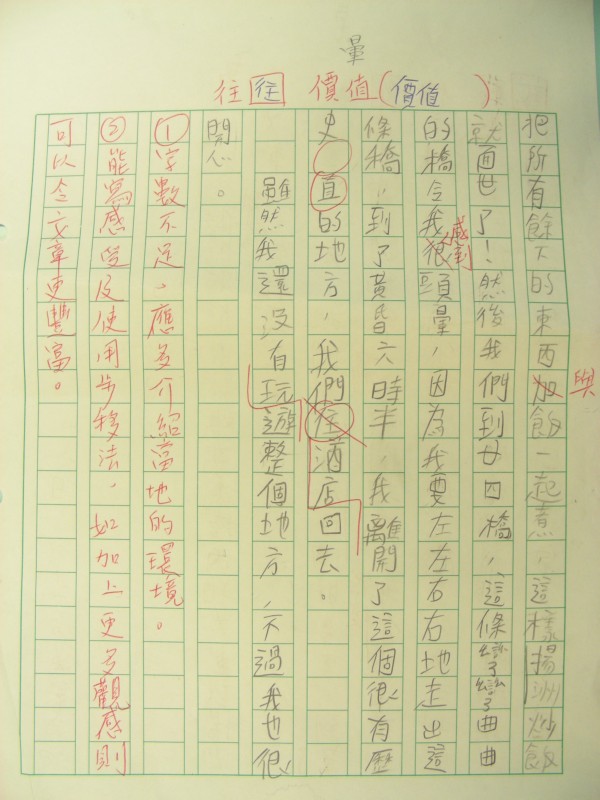 暈
往 往 價值(價值)
把所有餘下的東西加飯一起煮,這樣揚洲炒飯
與
就面世了!然後我們到廿四橋,這條彎彎曲曲
的橋令我很頭暈,因為我要左左右右地走出這
感到
條橋,到了黃昏六時半,我離開了這個很有歷
史 直的地方,我們往酒店回去。
雖然我還沒有玩遊整個地方,不過我也很
開心。
①字數不足,應多介紹當地的環境。
②能寫感受及使用步移法,如加上更多觀感則
可以令文章更豐富。